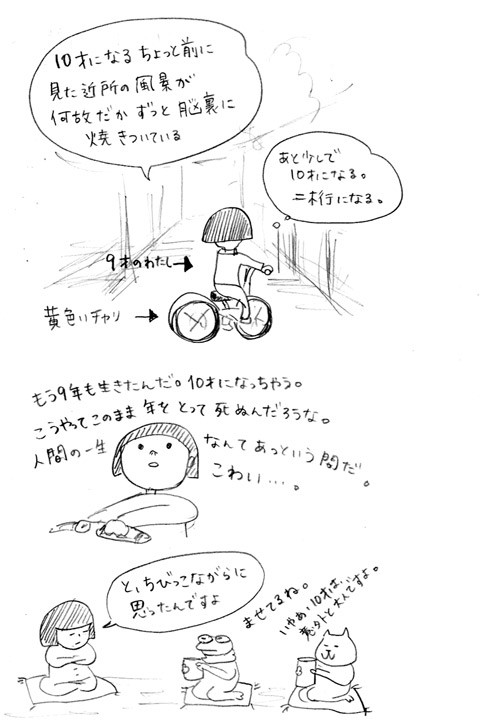 10才になるちょっと前に
見た近所の風景が
何故だかずっと脳裏に
焼きついている
あと少しで
10才になる。
二桁行になる。
9才のわたし→
黄色いチャリ→
もう9年も生きたんだ。10才になっちゃう。
こうやってこのまま年をとって死ぬんだろうな。
人間の一生
なんてあっという間だ。
こわい…。
と、ちびっこながらに
思ったんですよ
ませてるね。
いやあ、10才は、
意外と大人ですよ。